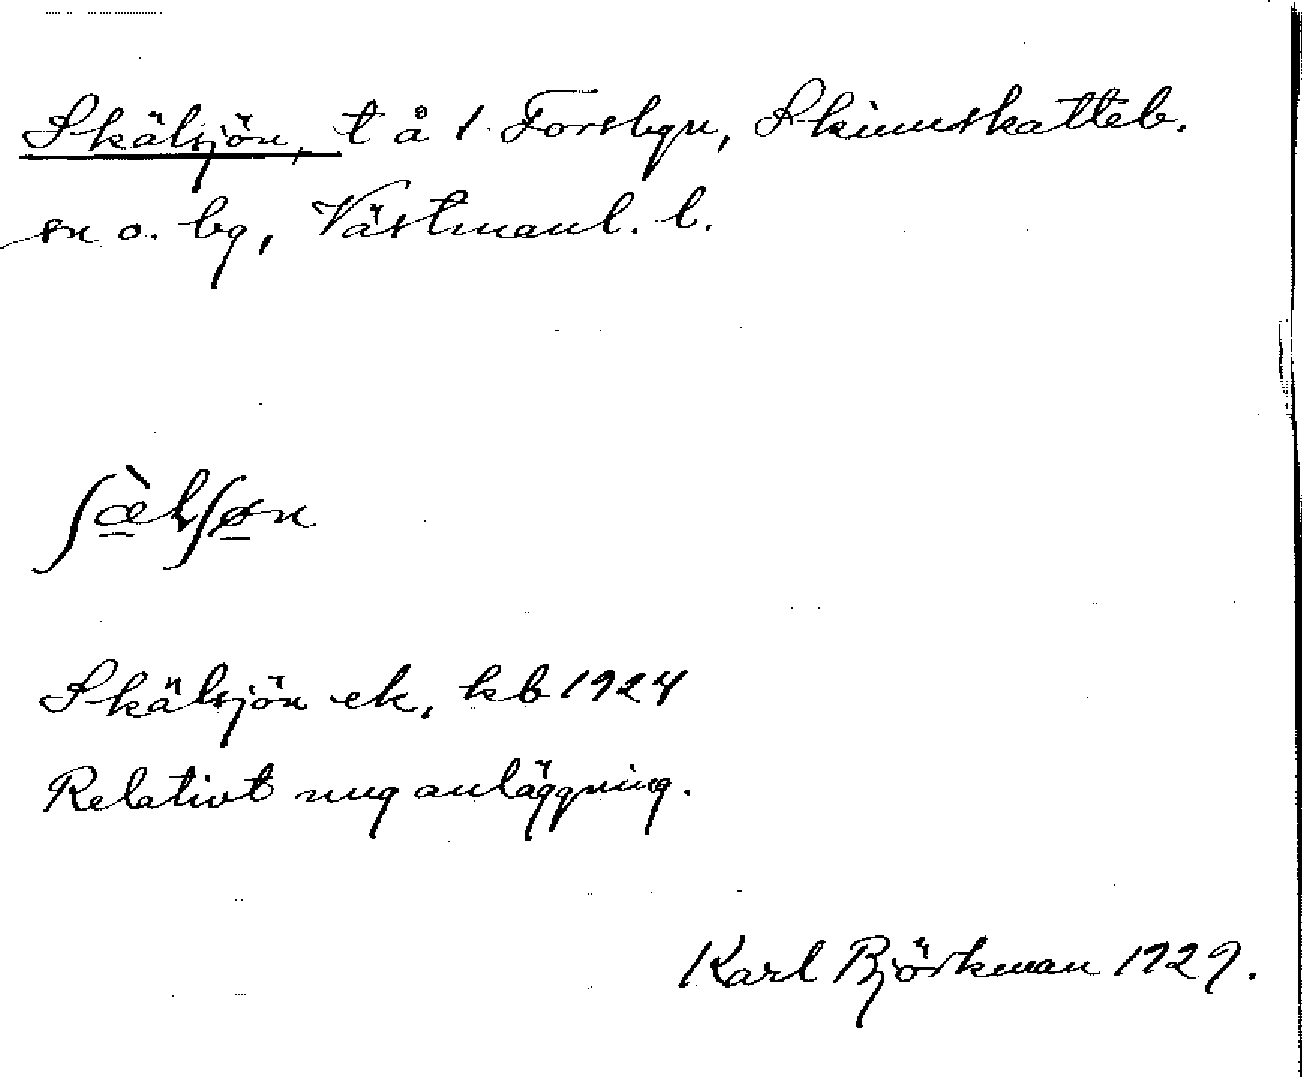 Skälsjön, t å 1 Forsbyn, Skinnskatteb.
sn o. bg, Västmanl. l.
ʃæ̠̀lʃø̠n
Skälsjön ek, kb 1924
Relativt nug anläggning.
Karl Björkman 1929.